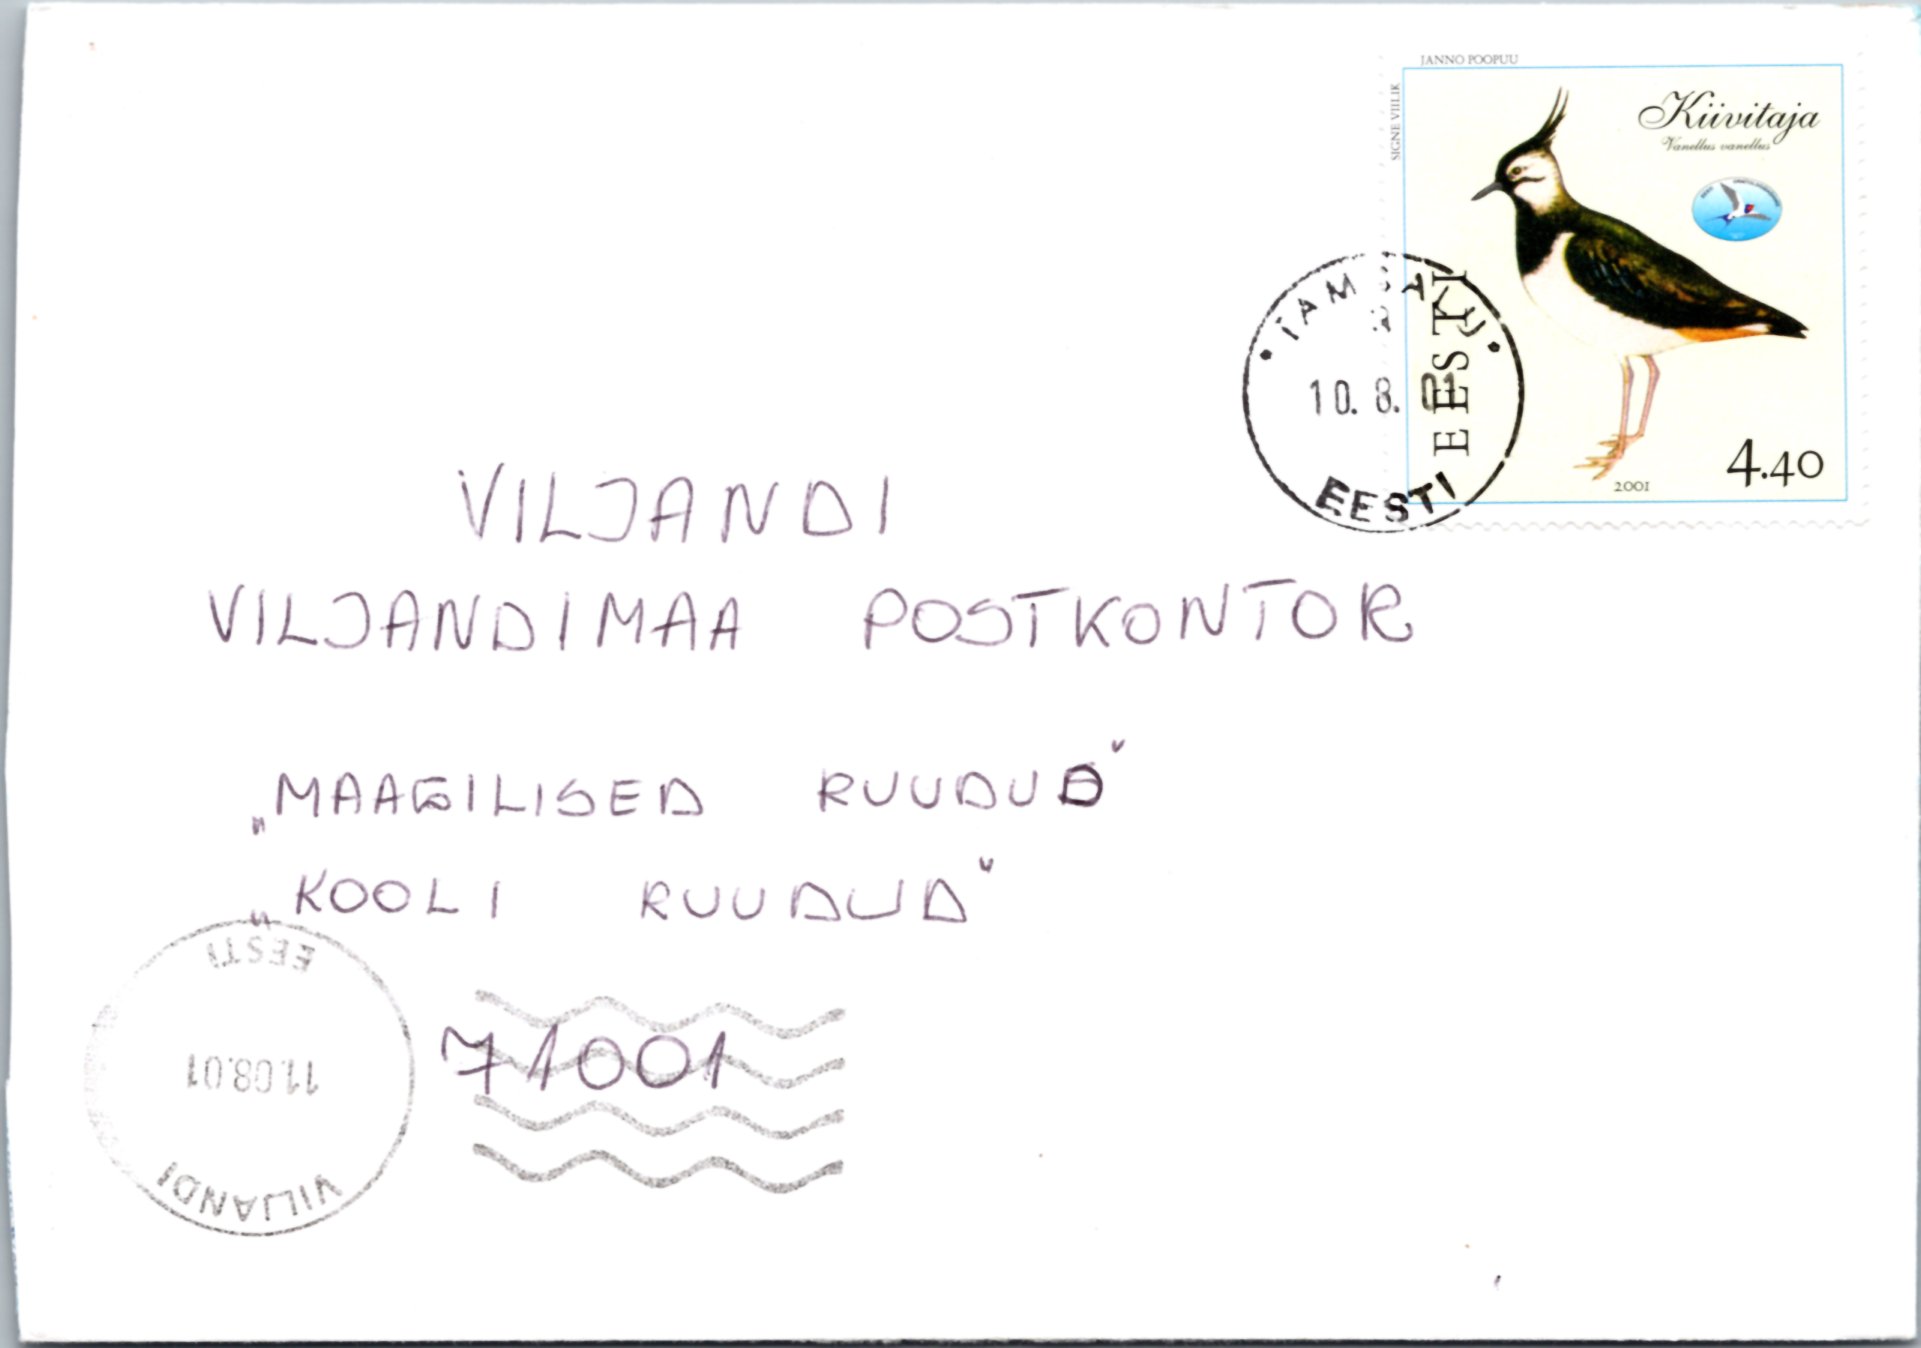 JANNO POOPUU
SIGNE VIILIK
Kiivitaja
Vanellus vanellus
EESTI
2001
4.40
TAMSALU
10. 8. 01
EESTI
VILJANDI
VILJANDIMAA POSTKONTOR
„MAAGILISED RUUDUD"
„KOOLI RUUDUD"
71001
EESTI
11.08.01
VILJANDI